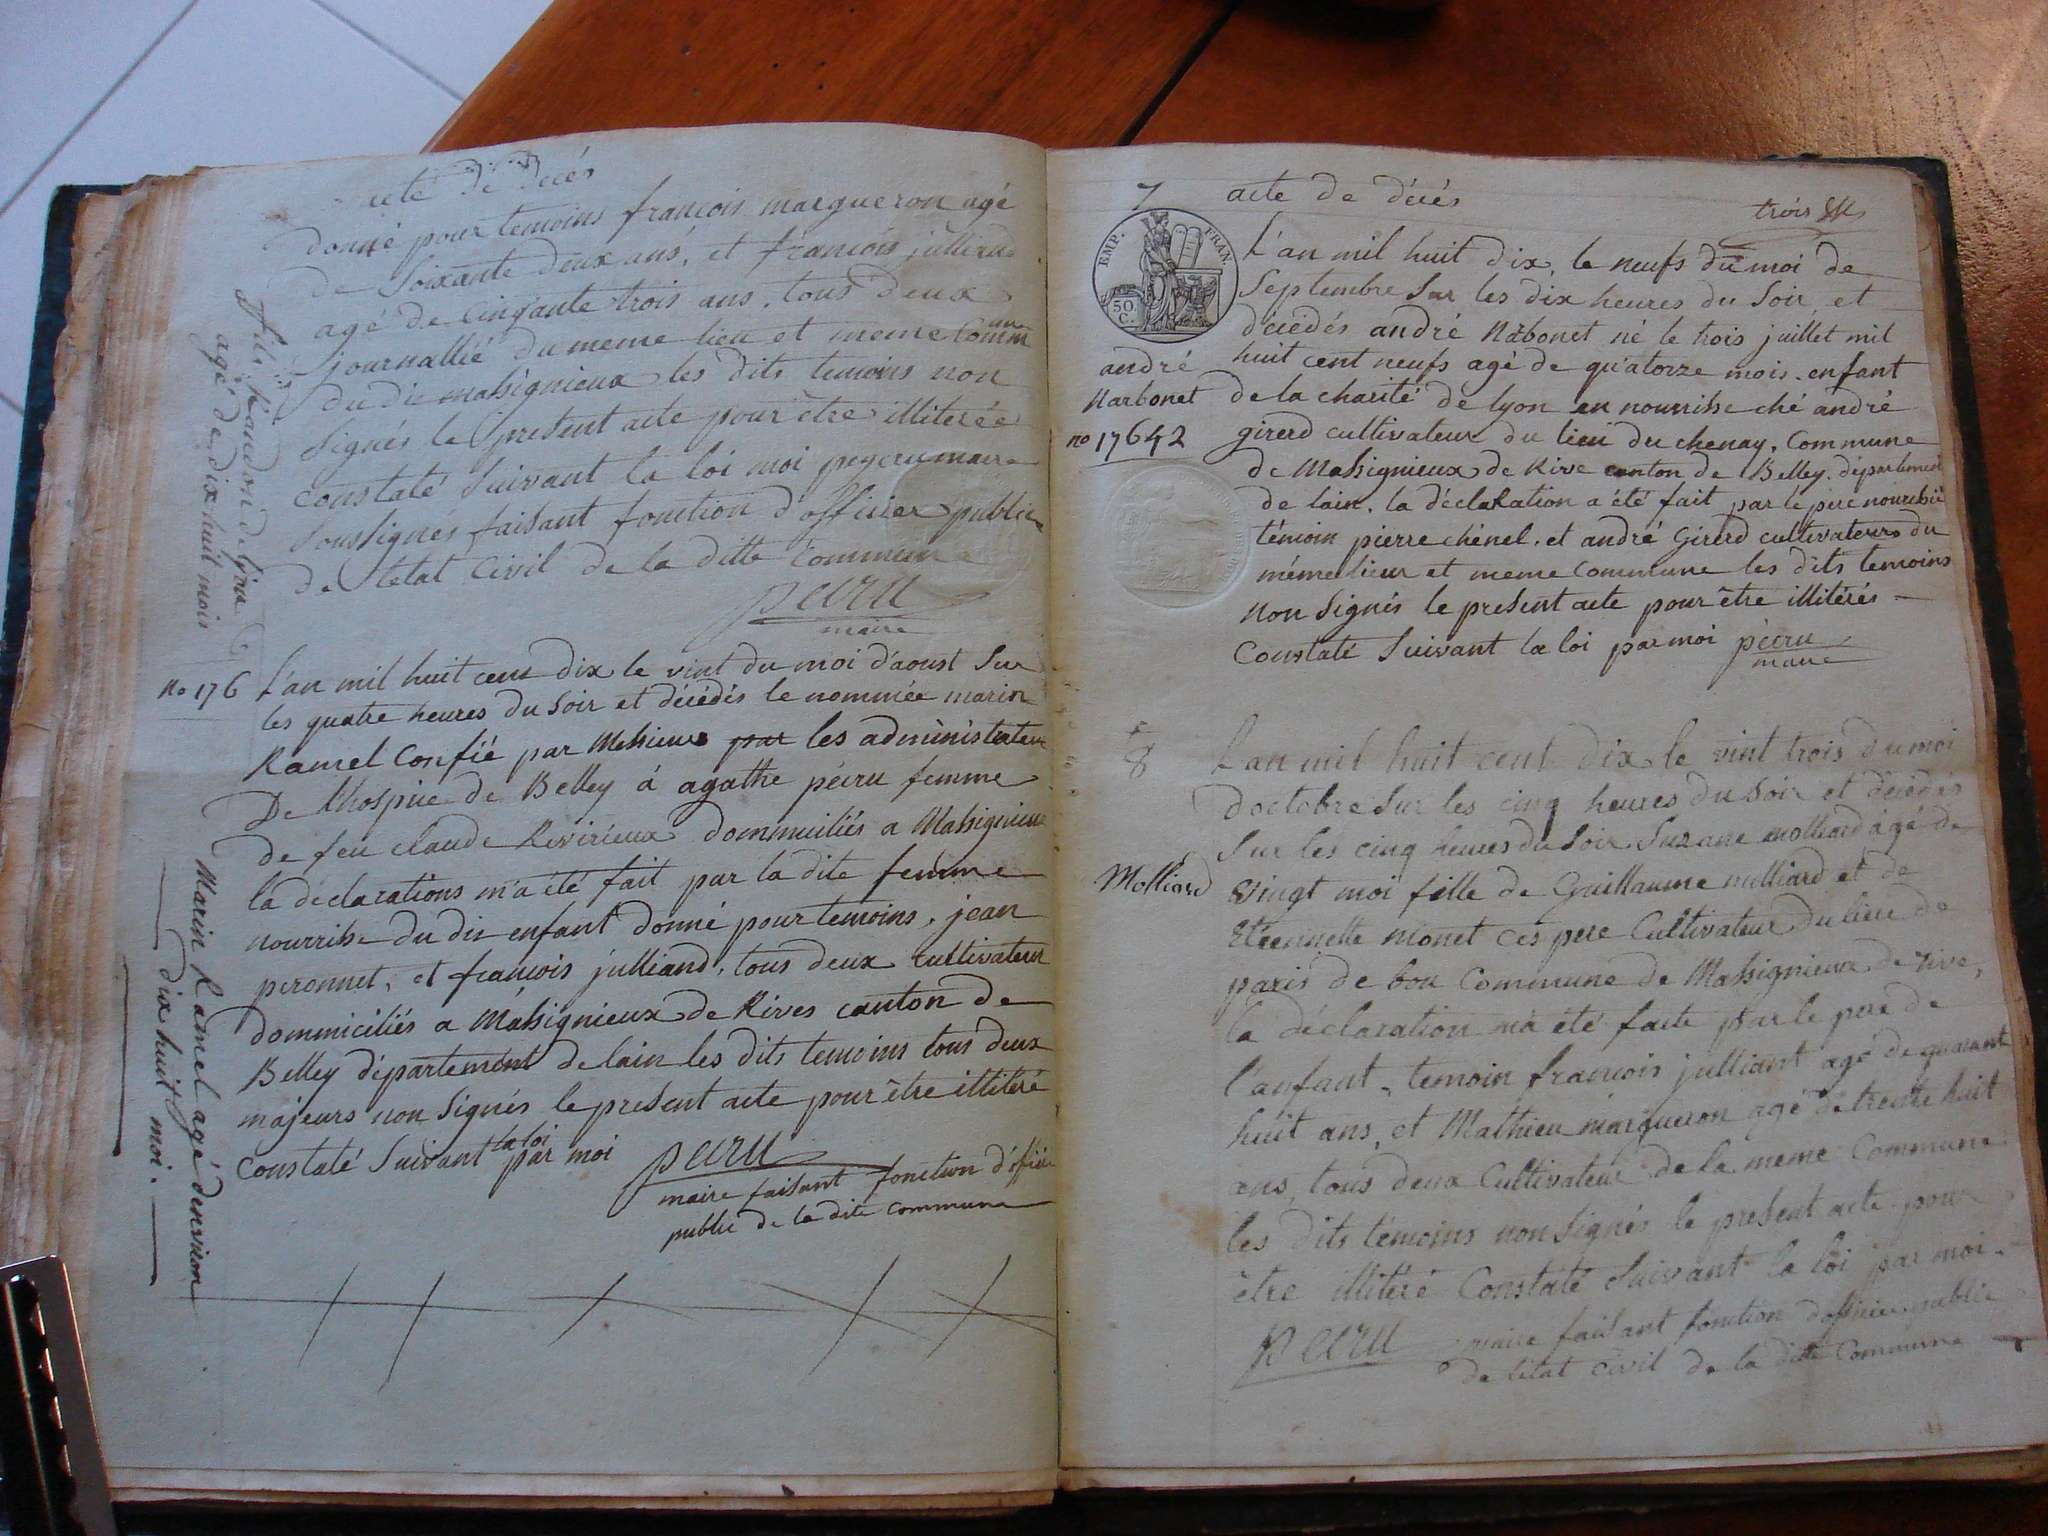 acte de décés
donné pour temoins françois margueron agé
de Soixante deux ans, et françois julliend
agé de cinqante trois ans, tous deux
journallié du meme lieu et meme Commun
du dit massignieux les dits temoins non
Signés le present acte pour être illiterée
constaté Suivant la loi moi pegeru maire
Soussignés faisant fonction d'officier public
de l'état Civil de la ditte Commune
pecru
maire
agé de dix huit mois
no 176
L'an mil huit cent dix le vint du moi d'aoust Sur
les quatre heures du Soir et décédés le nommée marin
Ramel Confié par Messieurs par les administrateur
De lhospice de Belley á agathe pécru femme
de feu claude Revirieux dommiciliés a Massignieux
la déclarations m'a été fait par la dite femme
nourrisse du dit enfant donné pour temoins, jean
peronnet, et françois julliand, tous deux cultivateur
dommiciliés a Massignieux de Rives canton de
Belley département de lain les dits temoins tous deux
majeurs non Signés le present acte pour être illitéré
constaté Suivant la loi par moi pecru
maire faisant fonction d'officier
public de la dite commune
Marin Ramel agé denviron
dix huit moi.
7 acte de décés
trois
EMP. FRAN.
50 C.
andré
Narbonet
no 17642
L'an mil huit dix, le neufs du moi de
Septembre Sur les dix heures du Soir et
décédés andré Nabonet né le trois juillet mil
huit cent neufs agé de quatorze mois, enfant
de la charité de lyon en nourrisse ché andré
girerd cultivateur du lieu du chenay, Commune
de Massignieux de Rive canton de Belley département
de lain, la déclaration a été fait par le pere nourrissié
témoin pierre chénel, et andré Girerd cultivateurs du
même lieux et meme Commune les dits temoins
Non Signés le present acte pour être illitérés
Constaté Suivant la loi par moi pécru
maire
8
Molliard
L'an mil huit cent dix le vint trois du moi
doctobre Sur les cinq heures du Soir et décédés
Sur les cinq heures du Soir Suzane molliard agé de
vingt moi fille de Guillaume milliard et de
Etéennette Monet ces pere Cultivateur du lieu de
paris de bou Commune de Massignieux de rive,
la déclaration m'a été faite par le pere de
l'anfant, temoin françois julliant agé de quarant
huit ans, et Mathieu margueron agé de trente huit
ans, tous deux Cultivateur de la meme Commune
les dits témoins non Signés le present acte pour
être illitéré Constaté Suivant la loi par moi
pecru maire faisant fonction dofficier public
de létat civil de la ditte Commune